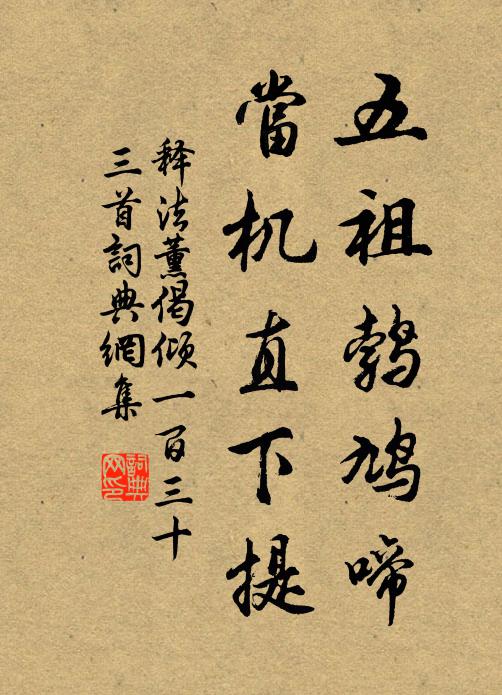 五祖鵓鳩啼
當机直下提
释法薰偈倾一百三十
三首詞典網集
詞典网印